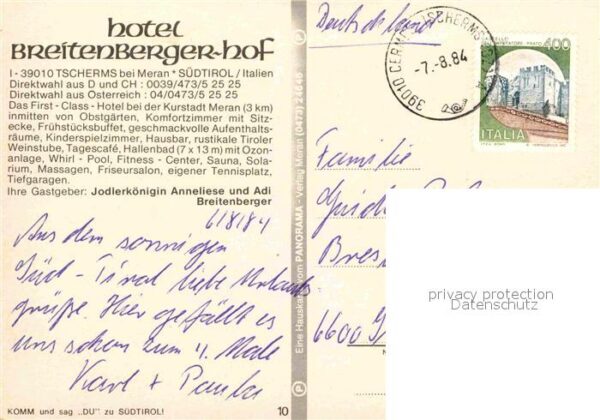 hotel
BREITENBERGER-HOF
I - 39010 TSCHERMS bei Meran * SÜDTIROL / Italien
Direktwahl aus D und CH : 0039/473/5 25 25
Direktwahl aus Österreich : 04/0473/5 25 25
Das First - Class - Hotel bei der Kurstadt Meran (3 km)
inmitten von Obstgärten, Komfortzimmer mit Sitz-
ecke, Frühstücksbuffet, geschmackvolle Aufenthalts-
räume, Kinderspielzimmer, Hausbar, rustikale Tiroler
Weinstube, Tagescafé, Hallenbad (7 x 13 m) mit Ozon-
anlage, Whirl - Pool, Fitness - Center, Sauna, Sola-
rium, Massagen, Friseursalon, eigener Tennisplatz,
Tiefgaragen.
Ihre Gastgeber: Jodlerkönigin Anneliese und Adi
Breitenberger
6/8/84
Aus dem sonnigen
Süd-Tirol liebe Urlaubs-
grüße. Hier gefällt es
uns schon zum 4. Male
Karl + Paula
KOMM und sag „DU" zu SÜDTIROL!
10
Eine Hauskarte vom PANORAMA - Verlag Meran (0473) 24646
Deutschland
39010 CERMES TSCHERMS
-7.-8.84
400
ITALIA
Familie
Guido
Bres
6600
privacy protection
Datenschutz